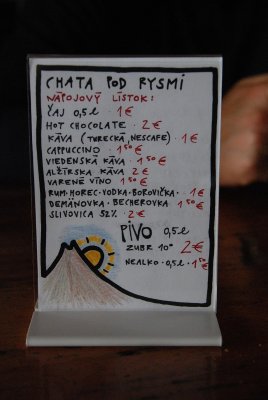 CHATA POD RYSMI
NÁPOJOVÝ LÍSTOK:
ČAJ 0,5 l • 1€
HOT CHOCOLATE • 2€
KÁVA (TURECKÁ, NESCAFE) • 1€
CAPPUCCINO • 1⁵⁰€
VIEDENSKÁ KÁVA • 1⁵⁰€
ALŽÍRSKA KÁVA 2€
VARENÉ VÍNO • 1⁵⁰€
RUM•HOREC•VODKA•BOROVIČKA • 1€
DEMÄNOVKA•BECHEROVKA • 1⁵⁰€
SLIVOVICA 52% • 2€
PIVO 0,5 l
ZUBR 10° 2€
NEALKO•0,5 l • 1⁵⁰€